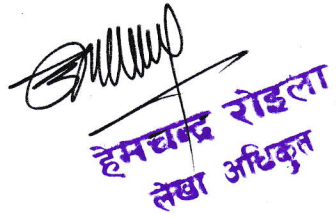 हेमचन्द्र रोइला
लेखा अधिकृत